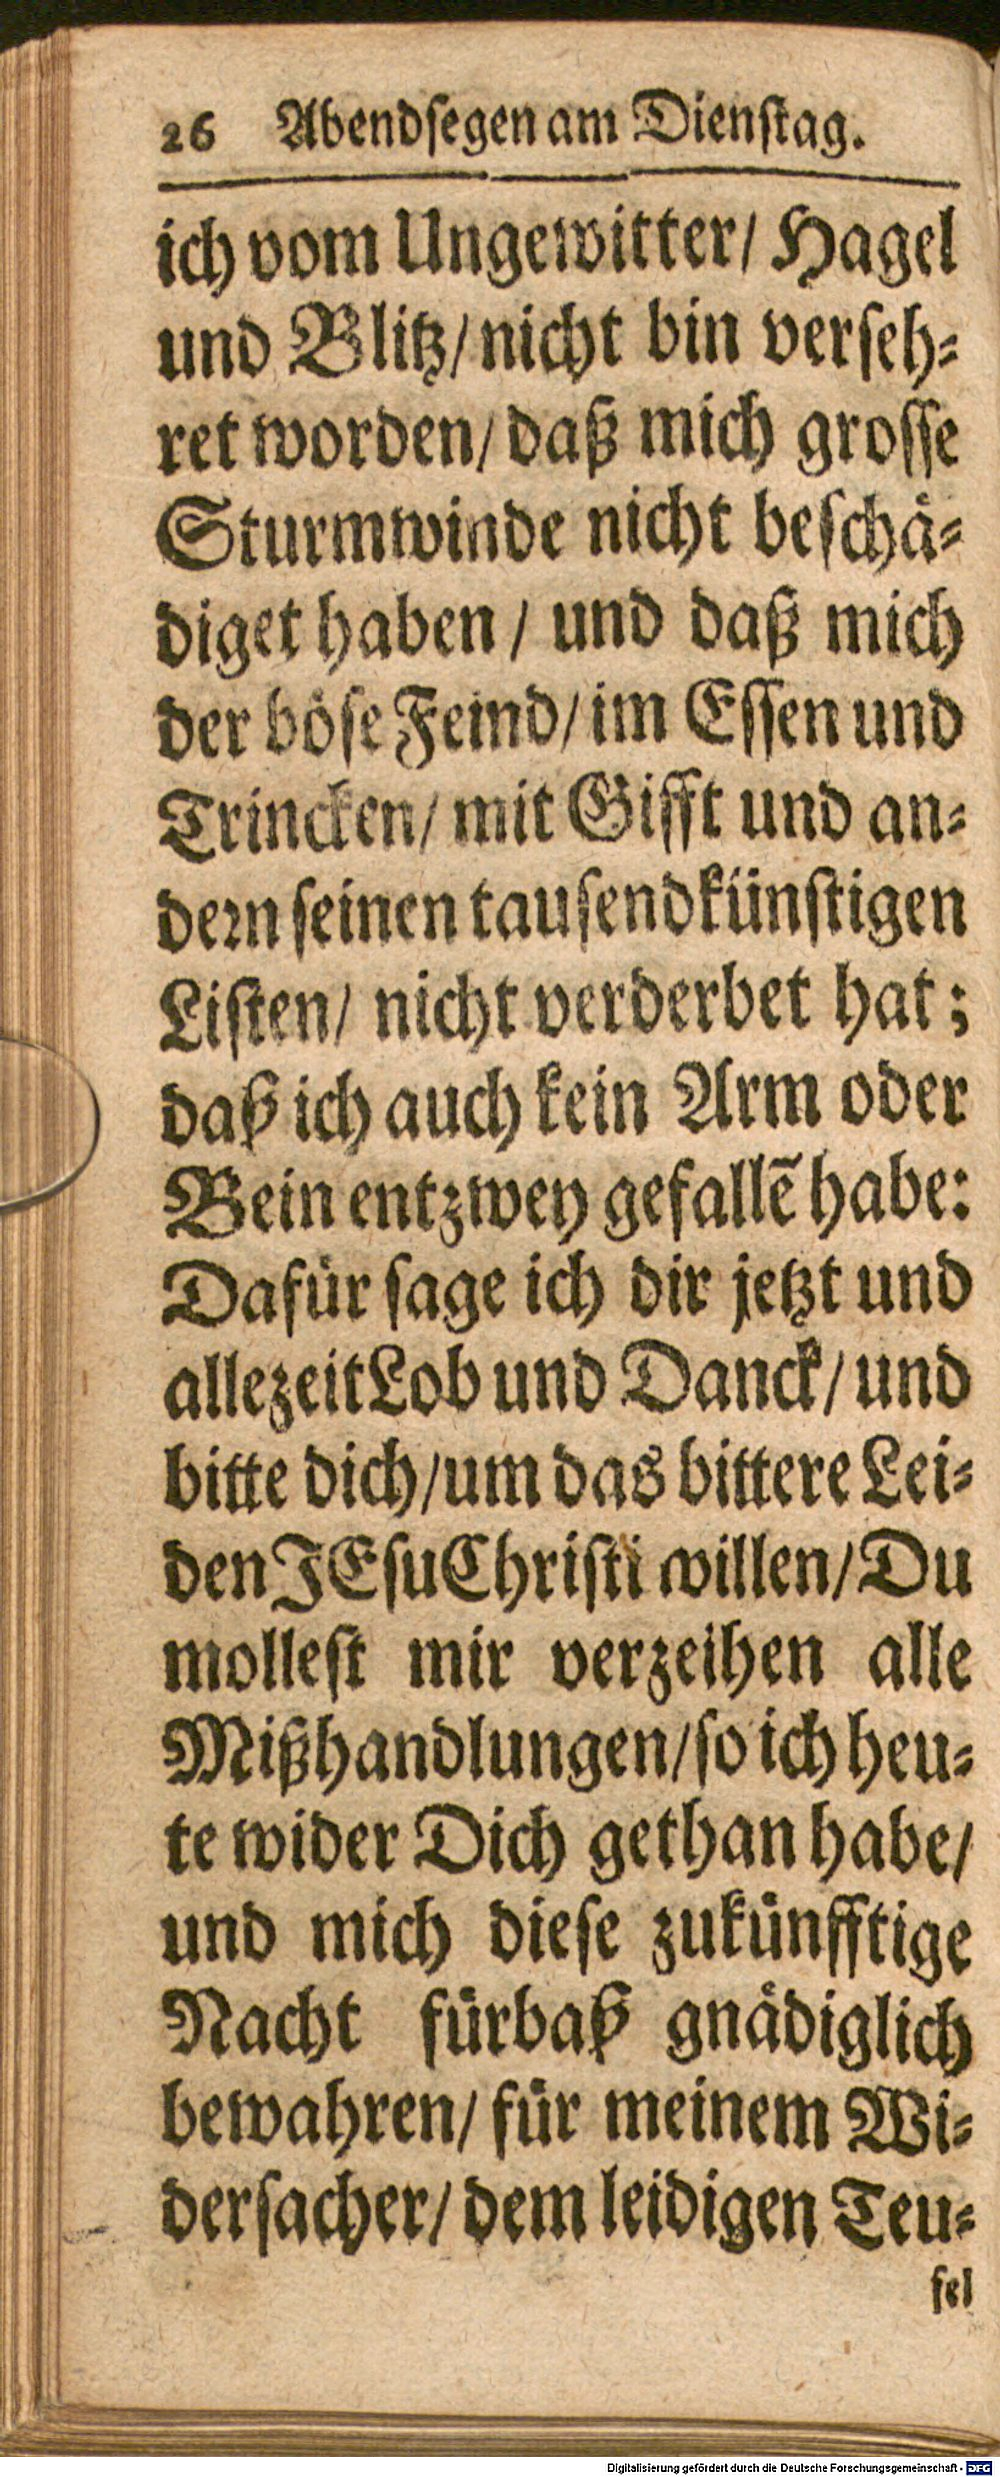 26 Abendsegen am Dienstag.
ich vom Ungewitter/ Hagel
und Blitz/ nicht bin verseh-
ret worden/ daß mich grosse
Sturmwinde nicht beschä-
diget haben / und daß mich
der böse Feind/ im Essen und
Trincken/ mit Gifft und an-
dern seinen tausendkünstigen
Listen/ nicht verderbet hat;
daß ich auch kein Arm oder
Bein entzwey gefallẽ habe:
Dafür sage ich dir jetzt und
allezeit Lob und Danck/ und
bitte dich/ um das bittere Lei-
den JEsu Christi willen/ Du
wollest mir verzeihen alle
Mißhandlungen/ so ich heu-
te wider Dich gethan habe/
und mich diese zukünfftige
Nacht fürbaß gnädiglich
bewahren/ für meinem Wi-
dersacher/ dem leidigen Teu-
fel
Digitalisierung gefördert durch die Deutsche Forschungsgemeinschaft - DFG